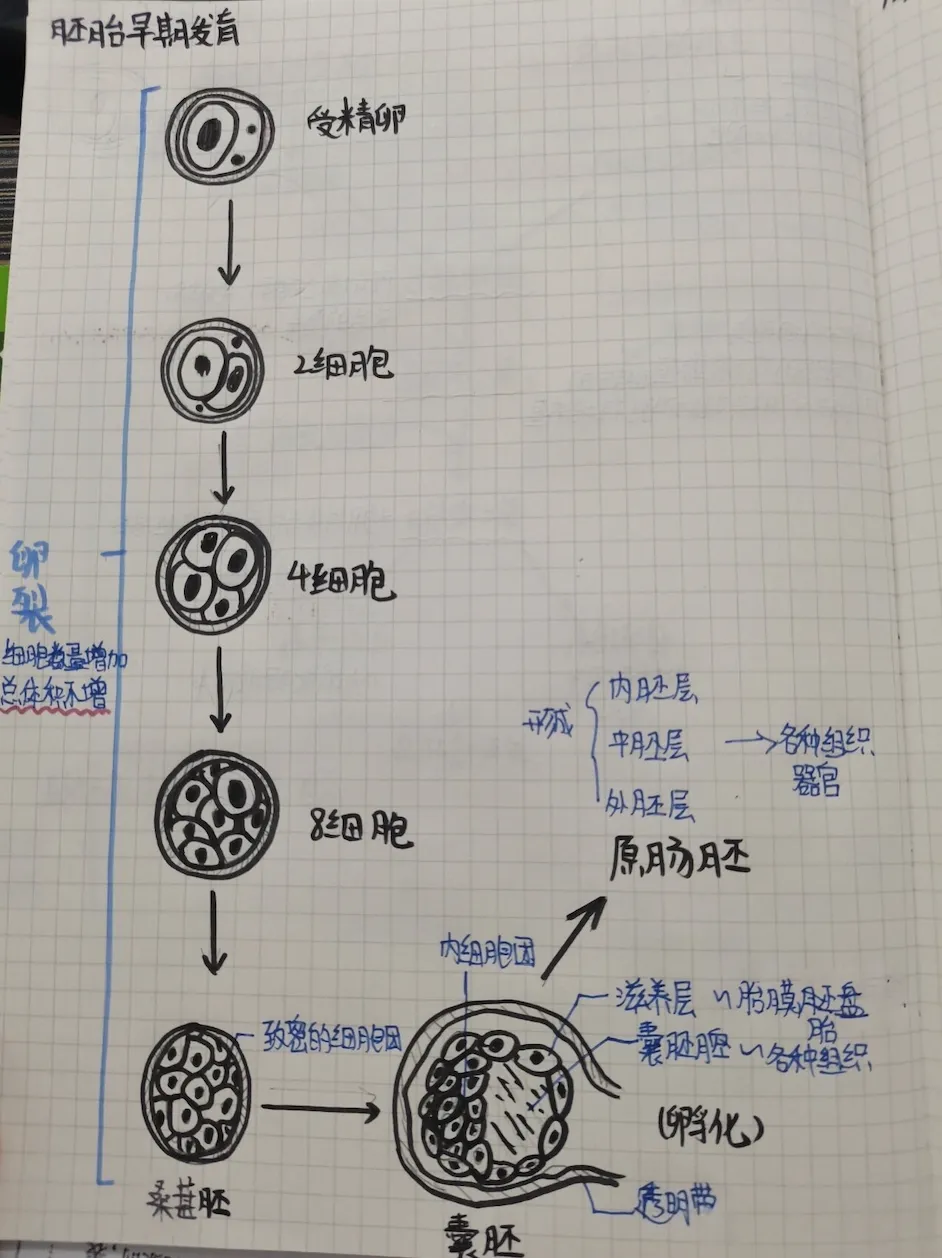 胚胎早期发育
受精卵
2细胞
4细胞
卵
裂
细胞数量增加
总体积不增
8细胞
形成
内胚层
中胚层
外胚层
各种组织
器官
原肠胚
内细胞团
致密的细胞团
滋养层
胎膜胚盘
胎
囊胚腔
各种组织
(孵化)
透明带
桑葚胚
囊胚